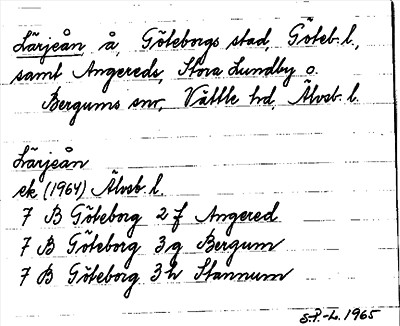 Lärjeån, å, Göteborgs stad, Göteb. l.,
samt Angereds, Stora Lundby o.
Bergums snr, Vättle hd, Älvsb. l.
Lärjeån
ek (1964) Älvsb. l.
7 B Göteborg 2 f Angered
7 B Göteborg 3 g Bergum
7 B Göteborg 3 h Stannum
S.P-L. 1965